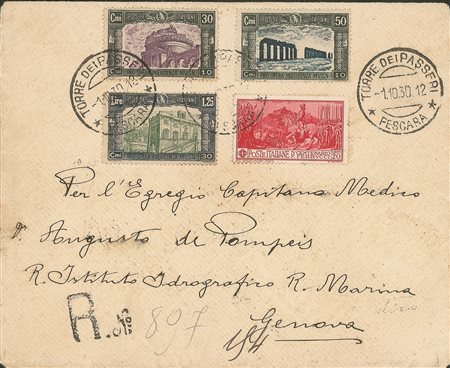 Cmi 30
POSTE ITALIANE
Cmi 10
Cmi 50
POSTE ITALIANE
Cmi 10
TORRE DEI PASSERI
-1.10.30.12
PESCARA
TORRE DEI PASSERI
-1.10.30.12
* PESCARA *
Lire 1,25
POSTE ITALIANE
Cmi 30
POSTE ITALIANE
20
Per l'Egregio Capitano Medico
D. Augusto de Pompeis
R. Istituto Idrografico R. Marina
Genova
R. No 897